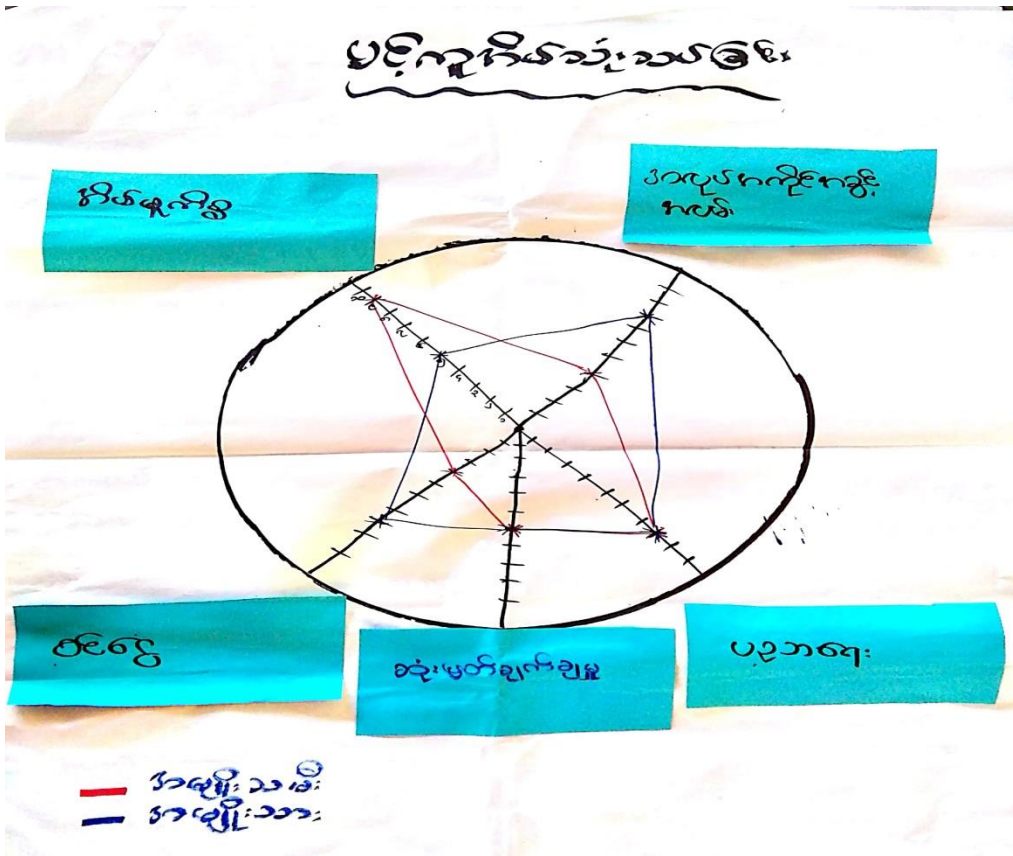 ပင့်ကူအိမ်သုံးသပ်ခြင်း
အိမ်မှုကိစ္စ
အလုပ်အကိုင်အခွင့်
အလမ်း
ဝင်ငွေ
ဆုံးမှတ်ချက်ချမှု
ပညာရေး
အမျိုးသမီး
အမျိုးသား